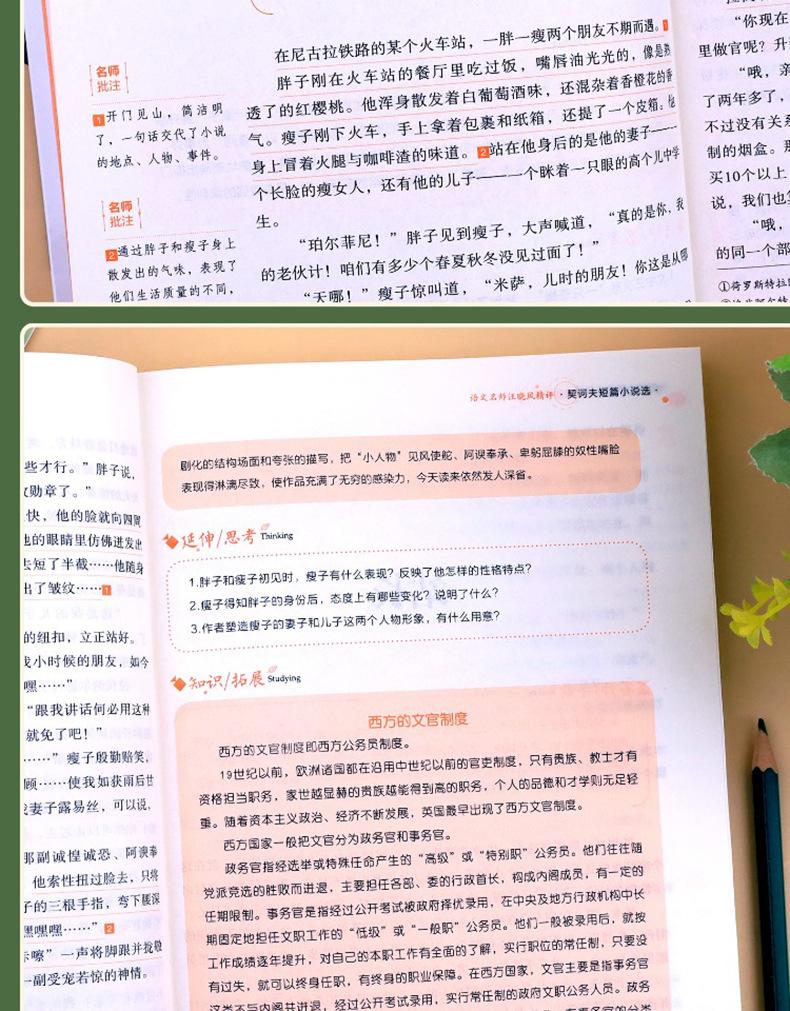 名师
批注
1开门见山，简洁明
了，一句话交代了小说
的地点、人物、事件。
名师
批注
2通过胖子和瘦子身上
散发出的气味，表现了
他们生活质量的不同，
在尼古拉铁路的某个火车站，一胖一瘦两个朋友不期而遇。1
胖子刚在火车站的餐厅里吃过饭，嘴唇油光光的，像是熟
透了的红樱桃。他浑身散发着白葡萄酒味，还混杂着香橙花的香
气。瘦子刚下火车，手上拿着包裹和纸箱，还提了一个皮箱。他
身上冒着火腿与咖啡渣的味道。2站在他身后的是他的妻子——
个长脸的瘦女人，还有他的儿子——一个眯着一只眼的高个儿中学
生。
“珀尔菲尼！”胖子见到瘦子，大声喊道，“真的是你，我
的老伙计！咱们有多少个春夏秋冬没见过面了！”
“天哪！”瘦子惊叫道，“米萨，儿时的朋友！你这是从哪
“你现在
里做官呢？升
“哦，亲
了两年多了，
不过没有关系
制的烟盒。那
买10个以上
说，我们也
“哦，
的同一个部
①荷罗斯特拉
语文名师汪晓风精评·契诃夫短篇小说选·
些才行。”胖子说，
勋章了。”
快，他的脸就向四周
他的眼睛里仿佛迸发出
去短了半截……他随身
出了皱纹……1
的纽扣，立正站好。
我小时候的朋友，如今
嘿……”
“跟我讲话何必用这种
就免了吧！”
……”瘦子殷勤赔笑，
顾……使我如获雨后甘
妻子露易丝，可以说，
那副诚惶诚恐、阿谀奉
他索性扭过脸去，只将
子的三根手指，弯下腰深
嘿嘿嘿……”2
嚓”一声将脚跟并拢敬
一副受宠若惊的神情。
剧化的结构场面和夸张的描写，把“小人物”见风使舵、阿谀奉承、卑躬屈膝的奴性嘴脸
表现得淋漓尽致，使作品充满了无穷的感染力，今天读来依然发人深省。
延伸/思考 Thinking
1.胖子和瘦子初见时，瘦子有什么表现？反映了他怎样的性格特点？
2.瘦子得知胖子的身份后，态度上有哪些变化？说明了什么？
3.作者塑造瘦子的妻子和儿子这两个人物形象，有什么用意？
知识/拓展 Studying
西方的文官制度
西方的文官制度即西方公务员制度。
19世纪以前，欧洲诸国都在沿用中世纪以前的官吏制度，只有贵族、教士才有
资格担当职务，家世越显赫的贵族越能得到高的职务，个人的品德和才学则无足轻
重。随着资本主义政治、经济不断发展，英国最早出现了西方文官制度。
西方国家一般把文官分为政务官和事务官。
政务官指经选举或特殊任命产生的“高级”或“特别职”公务员。他们往往随
党派竞选的胜败而进退，主要担任各部、委的行政首长，构成内阁成员，有一定的
任期限制。事务官是指经过公开考试被政府择优录用，在中央及地方行政机构中长
期固定地担任文职工作的“低级”或“一般职”公务员。他们一般被录用后，就按
工作成绩逐年提升，对自己的本职工作有全面的了解，实行职位的常任制，只要没
有过失，就可以终身任职，有终身的职业保障。在西方国家，文官主要是指事务官
这类不与内阁共进退，经过公开考试录用，实行常任制的政府文职公务人员。政务